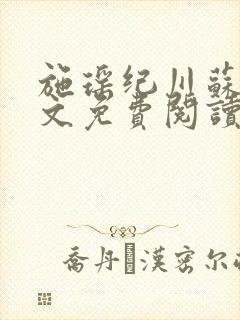 施瑶纪川蘇
文免費閱讀
喬丹漢密尔